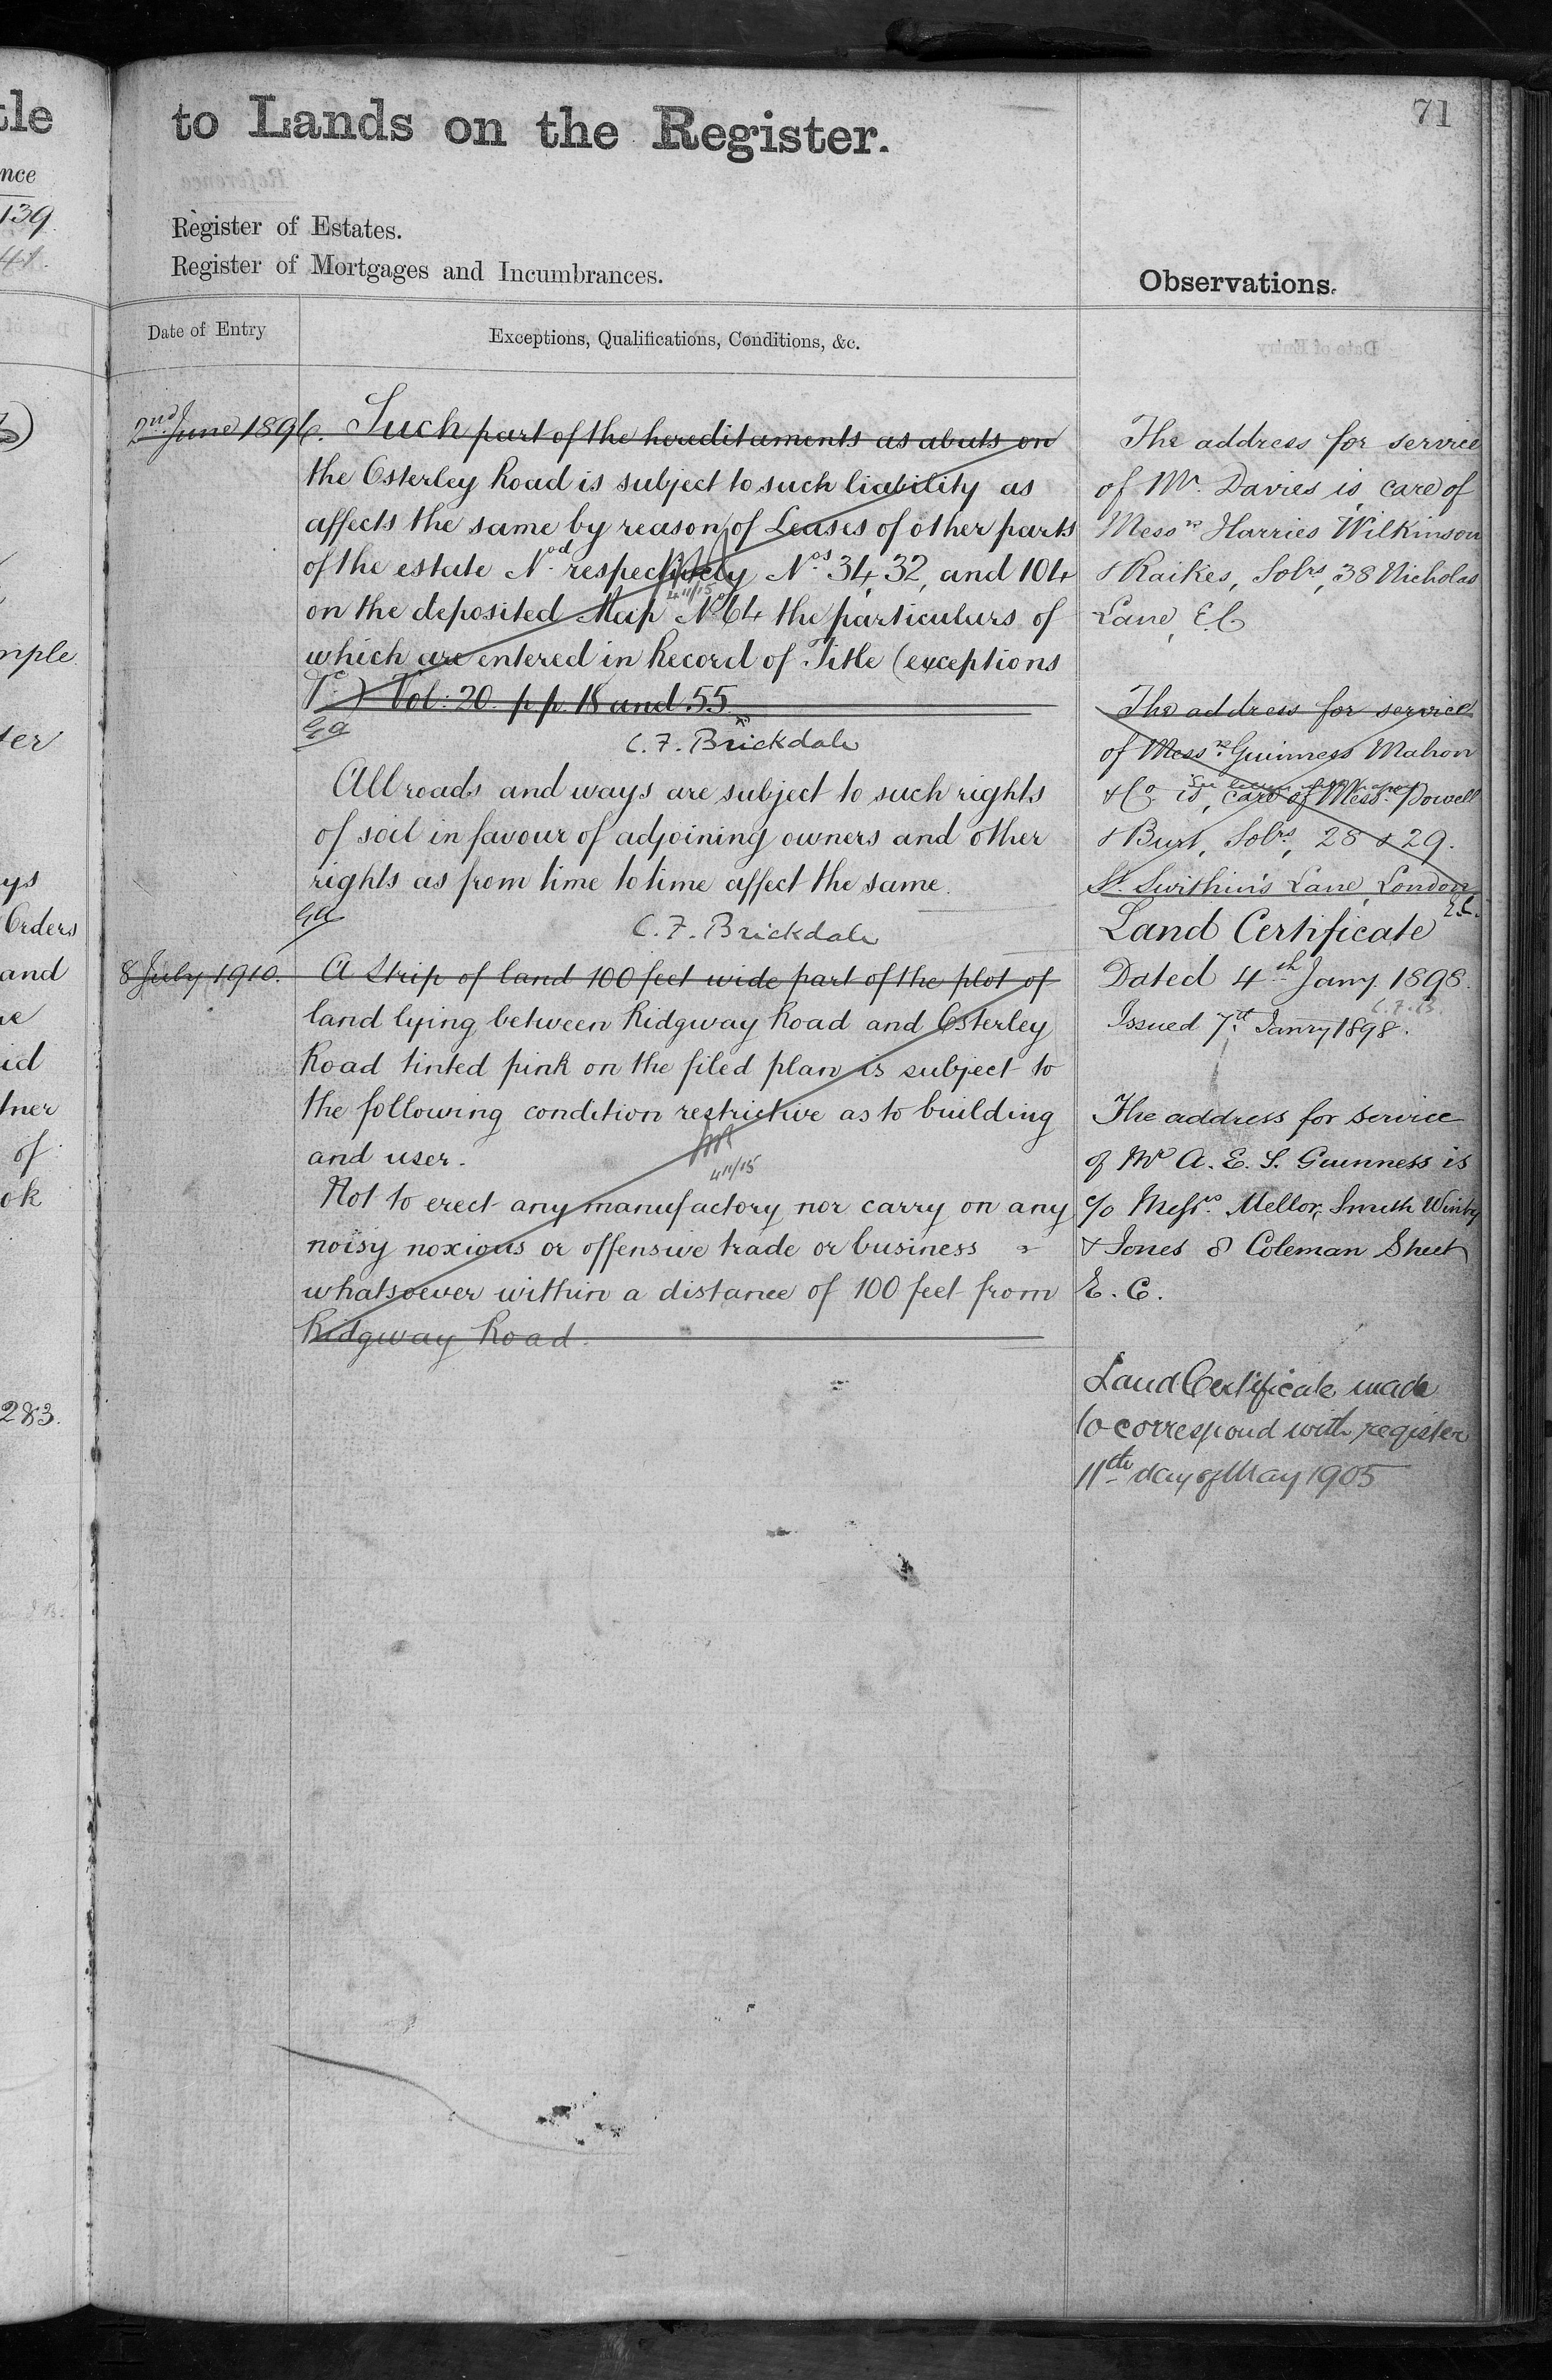 tle
nce
139.
41.
mple
ter
ys
Orders
and
id
tner
of
ok
283.
to Lands on the Register.
71
Register of Estates.
Register of Mortgages and Incumbrances.
Observations.
Date of Entry
Exceptions, Qualifications, Conditions, &c.
2nd June 1896. Such part of the hereditaments as abuts on
the Osterley Road is subject to such liability as
affects the same by reason of Leases of other parts
of the estate Nod respectively Nos 34, 32, and 104
4/11/15
on the deposited Map No 64 the particulars of
which are entered in Record of Title (exceptions
&c) Vol: 20. pp. 18 and 55.
Ga
C. F. Brickdale
All roads and ways are subject to such rights
of soil in favour of adjoining owners and other
rights as from time to time affect the same.
Ga
C. F. Brickdale
8 July 1910. A Strip of land 100 feet wide part of the plot of
land lying between Ridgway Road and Osterley
Road tinted pink on the filed plan is subject to
the following condition restrictive as to building
and user.
4/11/15
Not to erect any manufactory nor carry on any
noisy noxious or offensive trade or business
whatsoever within a distance of 100 feet from
Ridgway Road.
The address for service
of Mr. Davies is care of
Messrs Harries Wilkinson
& Raikes, Solrs, 38 Nicholas
Lane, E.C
The address for service
of Messrs. Guinness Mahon
& Co. is, care of Messrs. Powell
& Burt, Solrs, 28 & 29.
St. Swithin's Lane, London
E.C.
Land Certificate
Dated 4th Jany. 1898.
C.F.B.
Issued 7th Janry 1898.
The address for service
of Mr A. E. S. Guinness is
c/o Messrs. Mellor, Smith Winby
& Jones 8 Coleman Street
E. C.
Land Certificate made
to correspond with register
11th day of May 1905